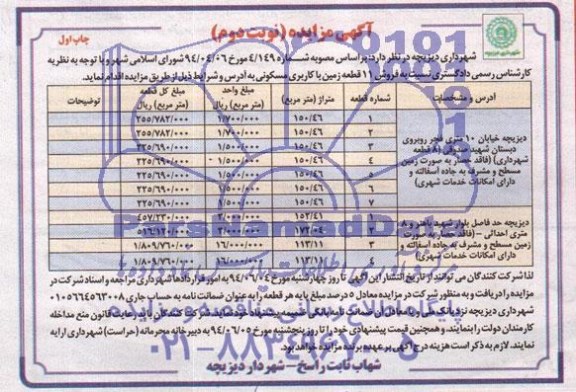 آگهی مزایده (نوبت دوم)
چاپ اول
شهرداری دیزیچه
شهرداری دیزیچه در نظر دارد، بر اساس مصوبه شماره ۴/۱۴۹ مورخ ۹۴/۰۴/۰۶ شورای اسلامی شهر و با توجه به نظریه
کارشناس رسمی دادگستری نسبت به فروش ۱۱ قطعه زمین با کاربری مسکونی به آدرس و شرایط ذیل از طریق مزایده اقدام نماید.
آدرس و مشخصات شماره قطعه متراژ (متر مربع) مبلغ واحد (متر مربع) ریال مبلغ کل قطعه (متر مربع) ریال توضیحات
دیزیچه خیابان ۱۰ متری فجر روبروی
دبستان شهید صدوقی (۸ قطعه
شهرداری) (فاقد حصار به صورت زمین
مسطح و مشرف به جاده آسفالته و
دارای امکانات خدمات شهری)
۱ ۱۵۰/۴۶ ۱/۷۰۰/۰۰۰ ۲۵۵/۷۸۲/۰۰۰
۲ ۱۵۰/۴۶ ۱/۷۰۰/۰۰۰ ۲۵۵/۷۸۲/۰۰۰
۳ ۱۵۰/۴۶ ۱/۵۰۰/۰۰۰ ۲۲۵/۶۹۰/۰۰۰
۴ ۱۵۰/۴۶ ۱/۵۰۰/۰۰۰ ۲۲۵/۶۹۰/۰۰۰
۵ ۱۵۰/۴۶ ۱/۵۰۰/۰۰۰ ۲۲۵/۶۹۰/۰۰۰
۶ ۱۵۰/۴۶ ۱/۵۰۰/۰۰۰ ۲۲۵/۶۹۰/۰۰۰
۷ ۱۵۰/۴۶ ۱/۵۰۰/۰۰۰ ۲۲۵/۶۹۰/۰۰۰
دیزیچه حد فاصل بلوار شهید باهنر و ۸
متری احداثی – (فاقد حصار به صورت
زمین مسطح و مشرف به جاده آسفالته و
دارای امکانات خدمات شهری)
۱ ۱۵۲/۴۱ ۴۵۷/۲۳۰/۰۰۰
۲ ۱۷۲/۰۴ ۵۱۶/۱۲۰/۰۰۰
۳ ۱۱۳/۱۱ ۱۶/۰۰۰/۰۰۰ ۱/۸۰۹/۷۶۰/۰۰۰
۴ ۱۱۳/۱۱ ۱۶/۰۰۰/۰۰۰ ۱/۸۰۹/۷۶۰/۰۰۰
لذا شرکت کنندگان می توانند از تاریخ انتشار این آگهی تا روز چهارشنبه مورخ ۹۴/۰۶/۰۴ به امور قراردادها شهرداری مراجعه و اسناد شرکت در
مزایده را دریافت و به منظور شرکت در مزایده معادل ۵ درصد مبلغ پایه هر قطعه را به عنوان ضمانت نامه به حساب جاری ۰۱۰۵۶۶۴۵۶۳۰۰۸
شهرداری دیزیچه نزد بانک ملی و یا معادل آن ضمانت نامه بانکی ضمیمه پیشنهاد خود نمایند. شرکت کنندگان باید رعایت قانون منع مداخله
کارمندان دولت را بنمایند. و همچنین قیمت پیشنهادی خود را تا روز پنجشنبه مورخ ۹۴/۰۶/۰۵ به دبیرخانه محرمانه (حراست) شهرداری ارایه
نمایند. لازم به ذکر است هزینه درج آگهی بر عهده برنده مزایده خواهد بود.
شهاب ثابت راسخ – شهردار دیزیچه